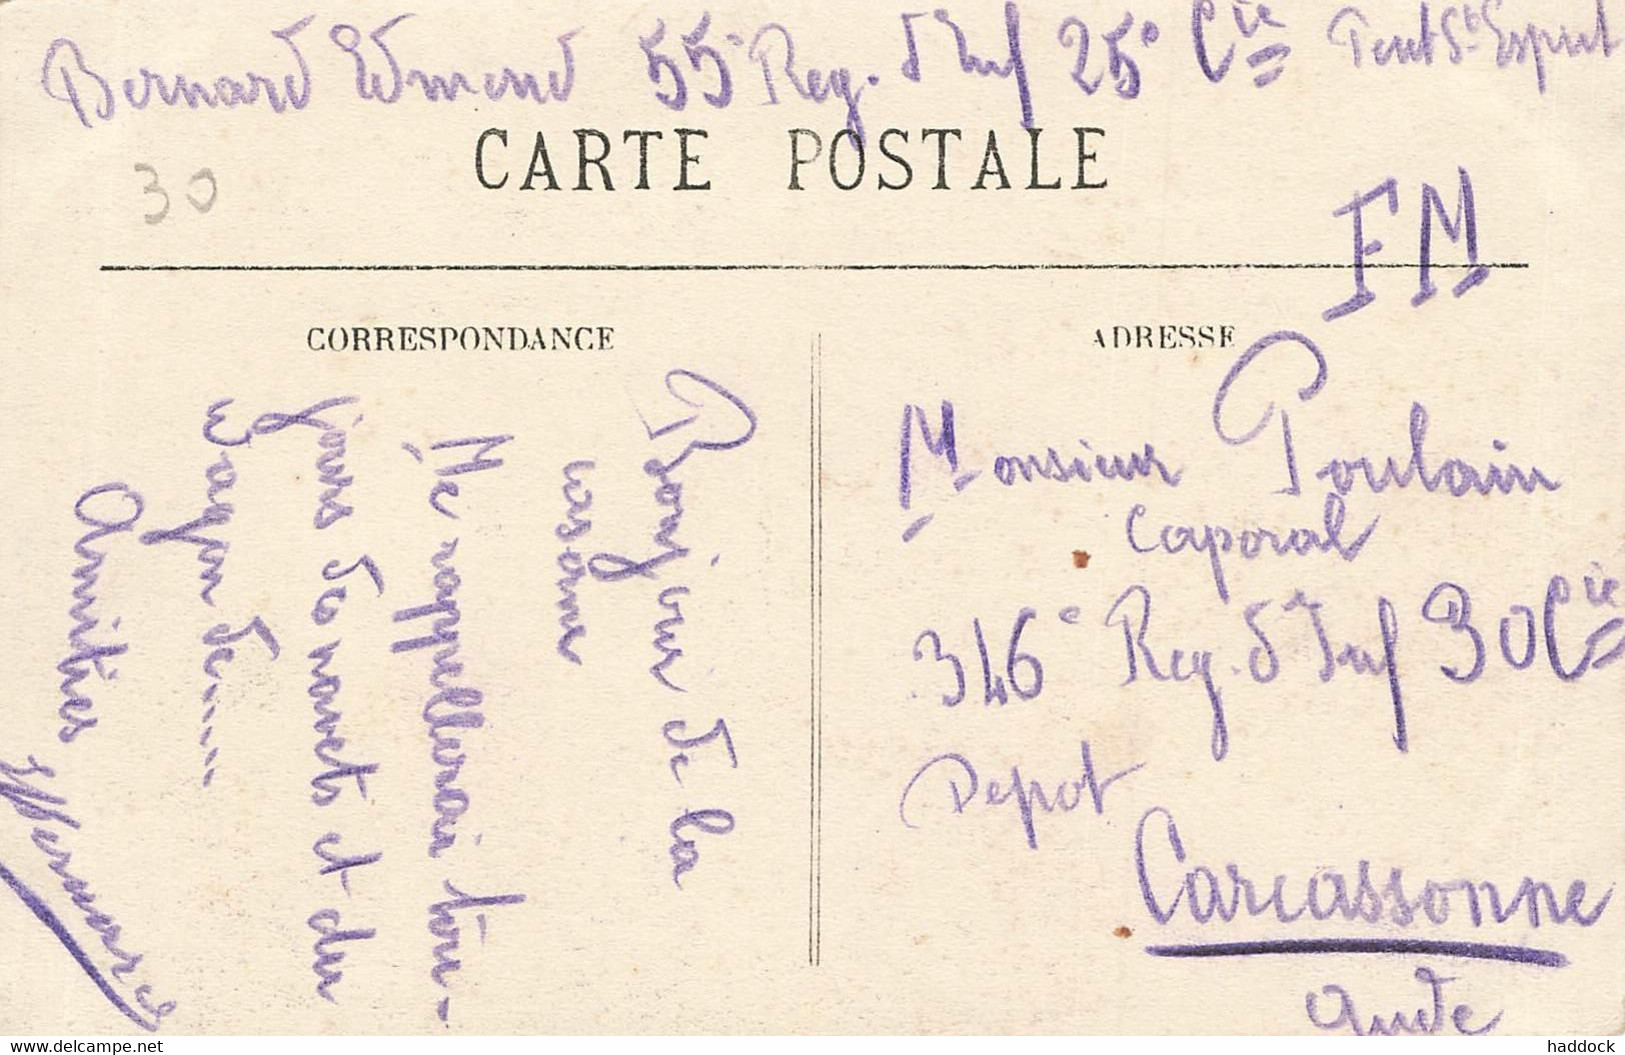 Bernard Edmond 55e Reg. d'Inf 25e Cie Pont St Esprit
CARTE POSTALE
30
FM
CORRESPONDANCE
Bonjour de la
caserne
Me rappellerai tou-
jours des navets et du
wagon de......
Amitiés
EBernard
ADRESSE
Monsieur Poulain
Caporal
346e Reg. d'Inf 30 Cie
Depot
Carcassonne
Aude
www.delcampe.net
haddock